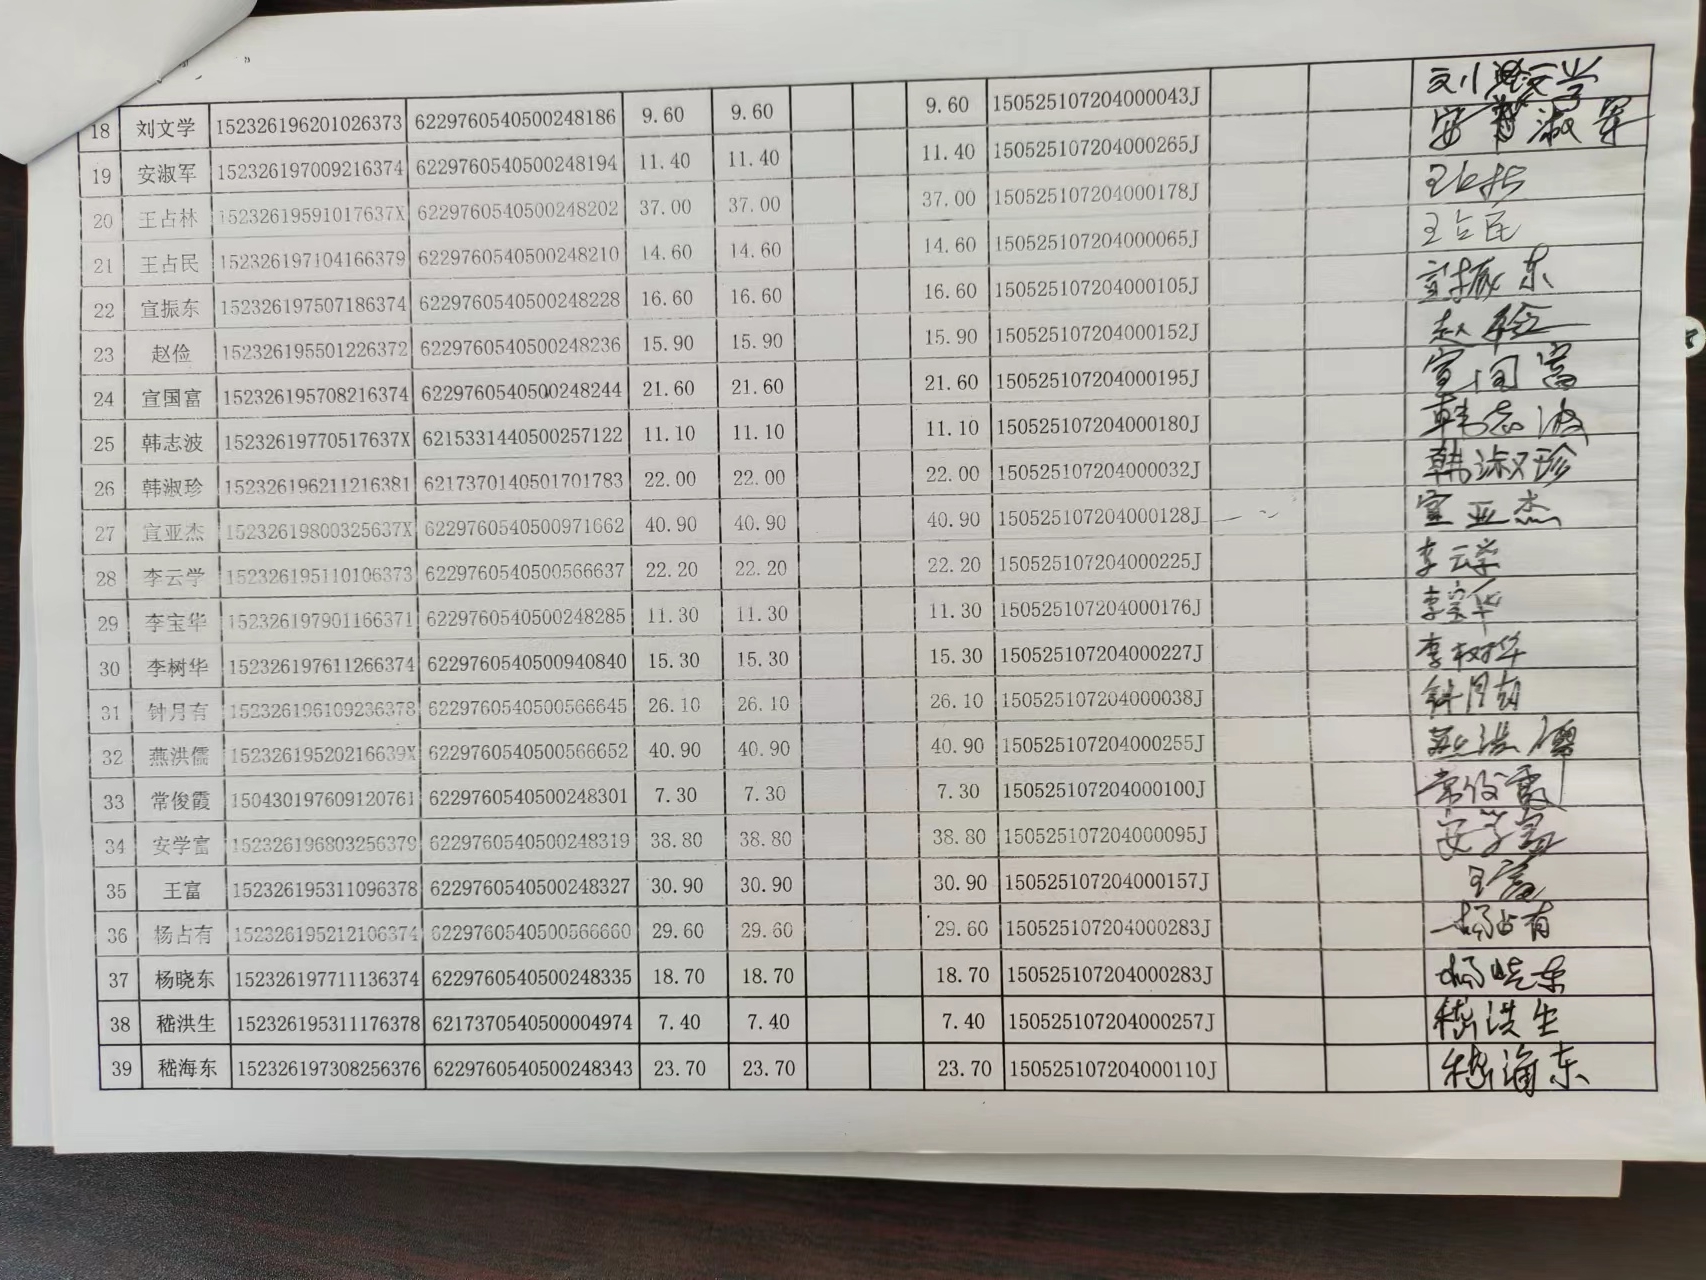 18 刘文学 152326196201026373 6229760540500248186 9.60 9.60 9.60 150525107204000043J 刘文学
19 安淑军 152326197009216374 6229760540500248194 11.40 11.40 11.40 150525107204000265J 安淑军
20 王占林 15232619591017637X 6229760540500248202 37.00 37.00 37.00 150525107204000178J
21 王占民 152326197104166379 6229760540500248210 14.60 14.60 14.60 150525107204000065J 王占民
22 宣振东 152326197507186374 6229760540500248228 16.60 16.60 16.60 150525107204000105J 宣振东
23 赵俭 152326195501226372 6229760540500248236 15.90 15.90 15.90 150525107204000152J 赵俭
24 宣国富 152326195708216374 6229760540500248244 21.60 21.60 21.60 150525107204000195J 宣国富
25 韩志波 15232619770517637X 6215331440500257122 11.10 11.10 11.10 150525107204000180J 韩志波
26 韩淑珍 152326196211216381 6217370140501701783 22.00 22.00 22.00 150525107204000032J 韩淑珍
27 宣亚杰 15232619800325637X 6229760540500971662 40.90 40.90 40.90 150525107204000128J 宣亚杰
28 李云学 152326195110106373 6229760540500566637 22.20 22.20 22.20 150525107204000225J 李云学
29 李宝华 152326197901166371 6229760540500248285 11.30 11.30 11.30 150525107204000176J 李宝华
30 李树华 152326197611266374 6229760540500940840 15.30 15.30 15.30 150525107204000227J 李树华
31 钟月有 152326196109236378 6229760540500566645 26.10 26.10 26.10 150525107204000038J 钟月有
32 燕洪儒 15232619520216639X 6229760540500566652 40.90 40.90 40.90 150525107204000255J 燕洪儒
33 常俊霞 150430197609120761 6229760540500248301 7.30 7.30 7.30 150525107204000100J 常俊霞
34 安学富 152326196803256379 6229760540500248319 38.80 38.80 38.80 150525107204000095J 安学富
35 王富 152326195311096378 6229760540500248327 30.90 30.90 30.90 150525107204000157J 王富
36 杨占有 152326195212106374 6229760540500566660 29.60 29.60 29.60 150525107204000283J 杨占有
37 杨晓东 152326197711136374 6229760540500248335 18.70 18.70 18.70 150525107204000283J 杨晓东
38 嵇洪生 152326195311176378 6217370540500004974 7.40 7.40 7.40 150525107204000257J 嵇洪生
39 嵇海东 152326197308256376 6229760540500248343 23.70 23.70 23.70 150525107204000110J 嵇海东